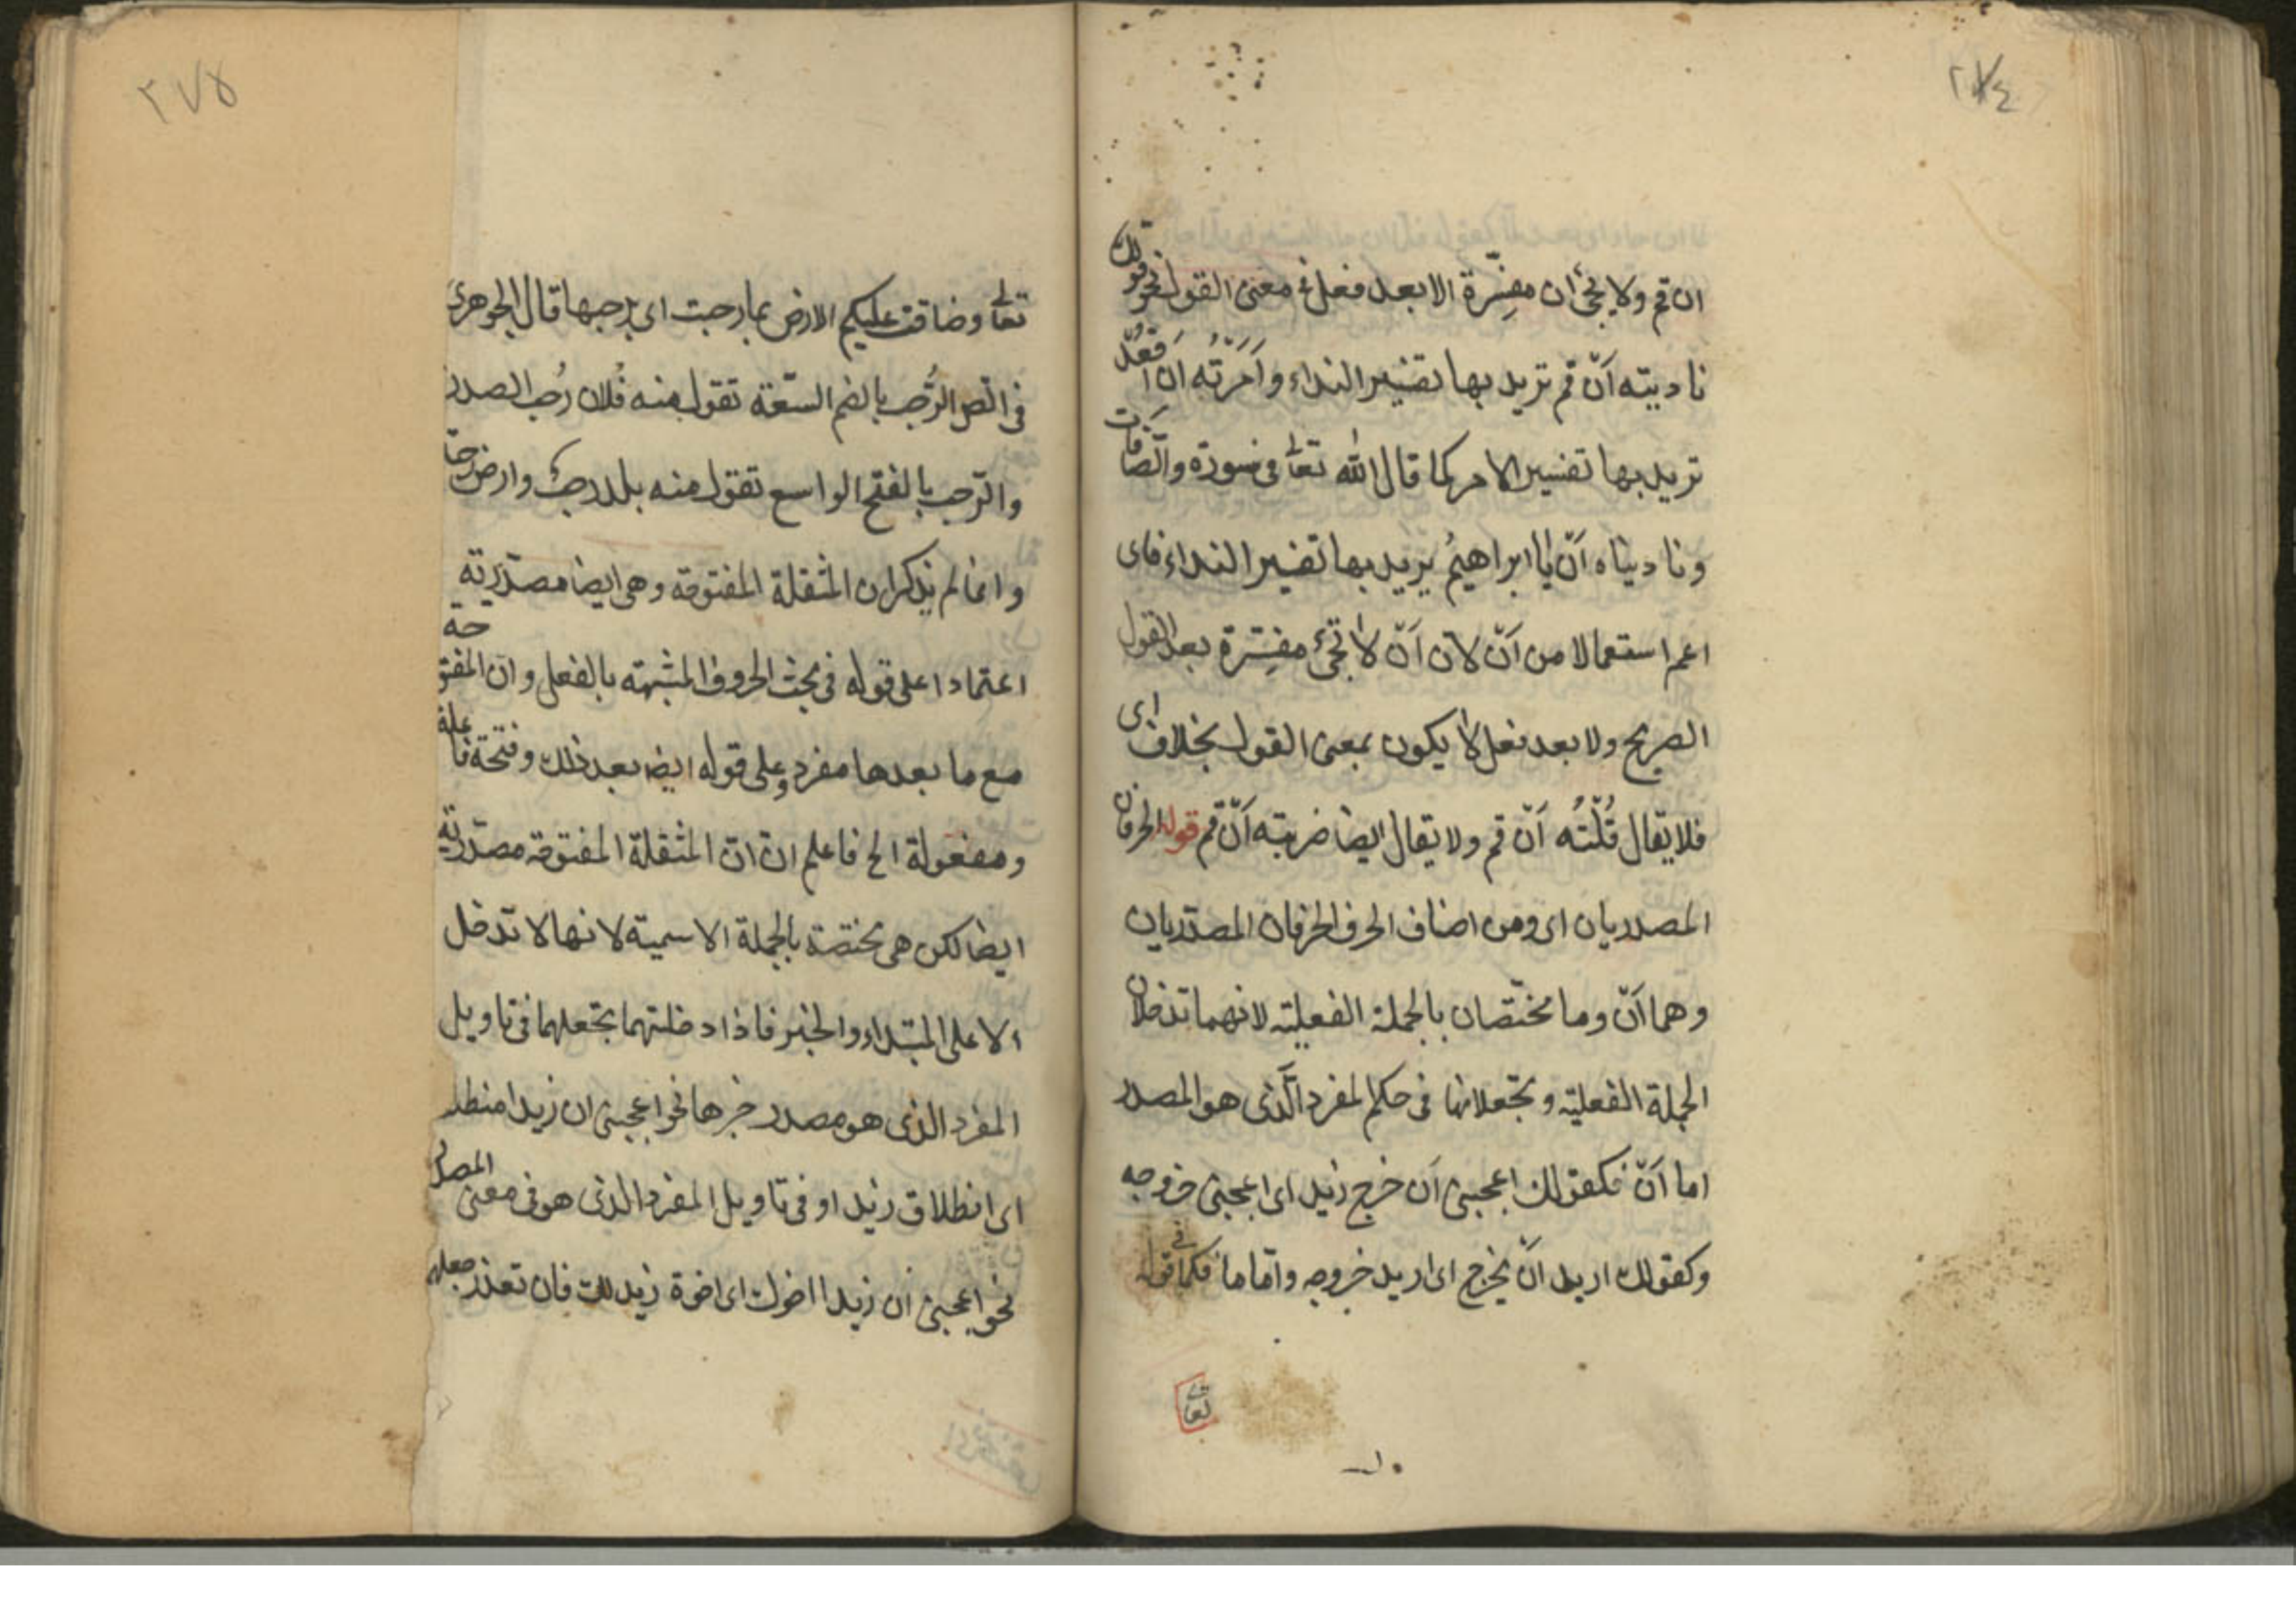 ٢٧٤
ان قم ولا يجئ ان مفسّرة الا بعد فعل فى معنى القول نحو قولك
ناديته اَنّ قم تريد بها تفسير النداء وأمرته ان اقعد
تريد بها تفسير الامر كما قال الله تعالى فى سورة والصافات
وناديناه اَنّ يا ابراهيم يريد بها تفسير النداء فاى
اعم استعمالا من اَنّ لان اَنّ لا تجئ مفسِّرة بعد القول
الصريح ولا بعد فعل لا يكون بمعنى القول بخلاف اى
فلا يقال قُلْتُه اَنّ قم ولا يقال ايضا ضربته اَنّ قم قوله الحرفان
المصدريان اى ومن اضاف الحرف الحرفان المصدريان
وهما اَنّ وما مختصّان بالجملة الفعليّة لانهما تدخلان
الجملة الفعليّة وتجعلانها فى حكم المفرد الّذى هو المصدر
اما اَنّ فكقولك اعجبنى اَن خرج زيد اى اعجبنى خروجه
وكقولك اريد اَنّ يخرج اى اريد خروجه وامّا ما فكما فى قوله
تعالى
٢٧٥
تعالى وضاقت عليكم الارض بما رحبت اى برحبها قال الجوهرى
فى الصحاح الرُّحب بالضم السّعة تقول منه فُلان رُحب الصدر
والرّحب بالفتح الواسع تقول منه بلد رحب وارض رحبة
وانما لم يذكر ان المثقلة المفتوحة وهى ايضا مصدّريّة
اعتمادا على قوله فى بحث الحروف المشبهة بالفعل وان المفتوحة
مع ما بعدها مفرد وعلى قوله ايضا بعد ذلك وفتحة فاعلة
ومفعولة الخ فاعلم انّ انّ المثقلة المفتوحة مصدّريّة
ايضا لكن هى مختصّة بالجملة الاسميّة لانها لا تدخل
الا على المبتداء والخبر فاذا دخلتهما تجعلهما فى تاويل
المفرد الذى هو مصدر خبرها نحو اعجبنى ان زيدا منطلق
اى انطلاق زيد او فى تاويل المفرد الذى هو فى معنى المصدر
نحو اعجبنى ان زيدا اخوك اى اخوة زيد لك فان تعذر جعله